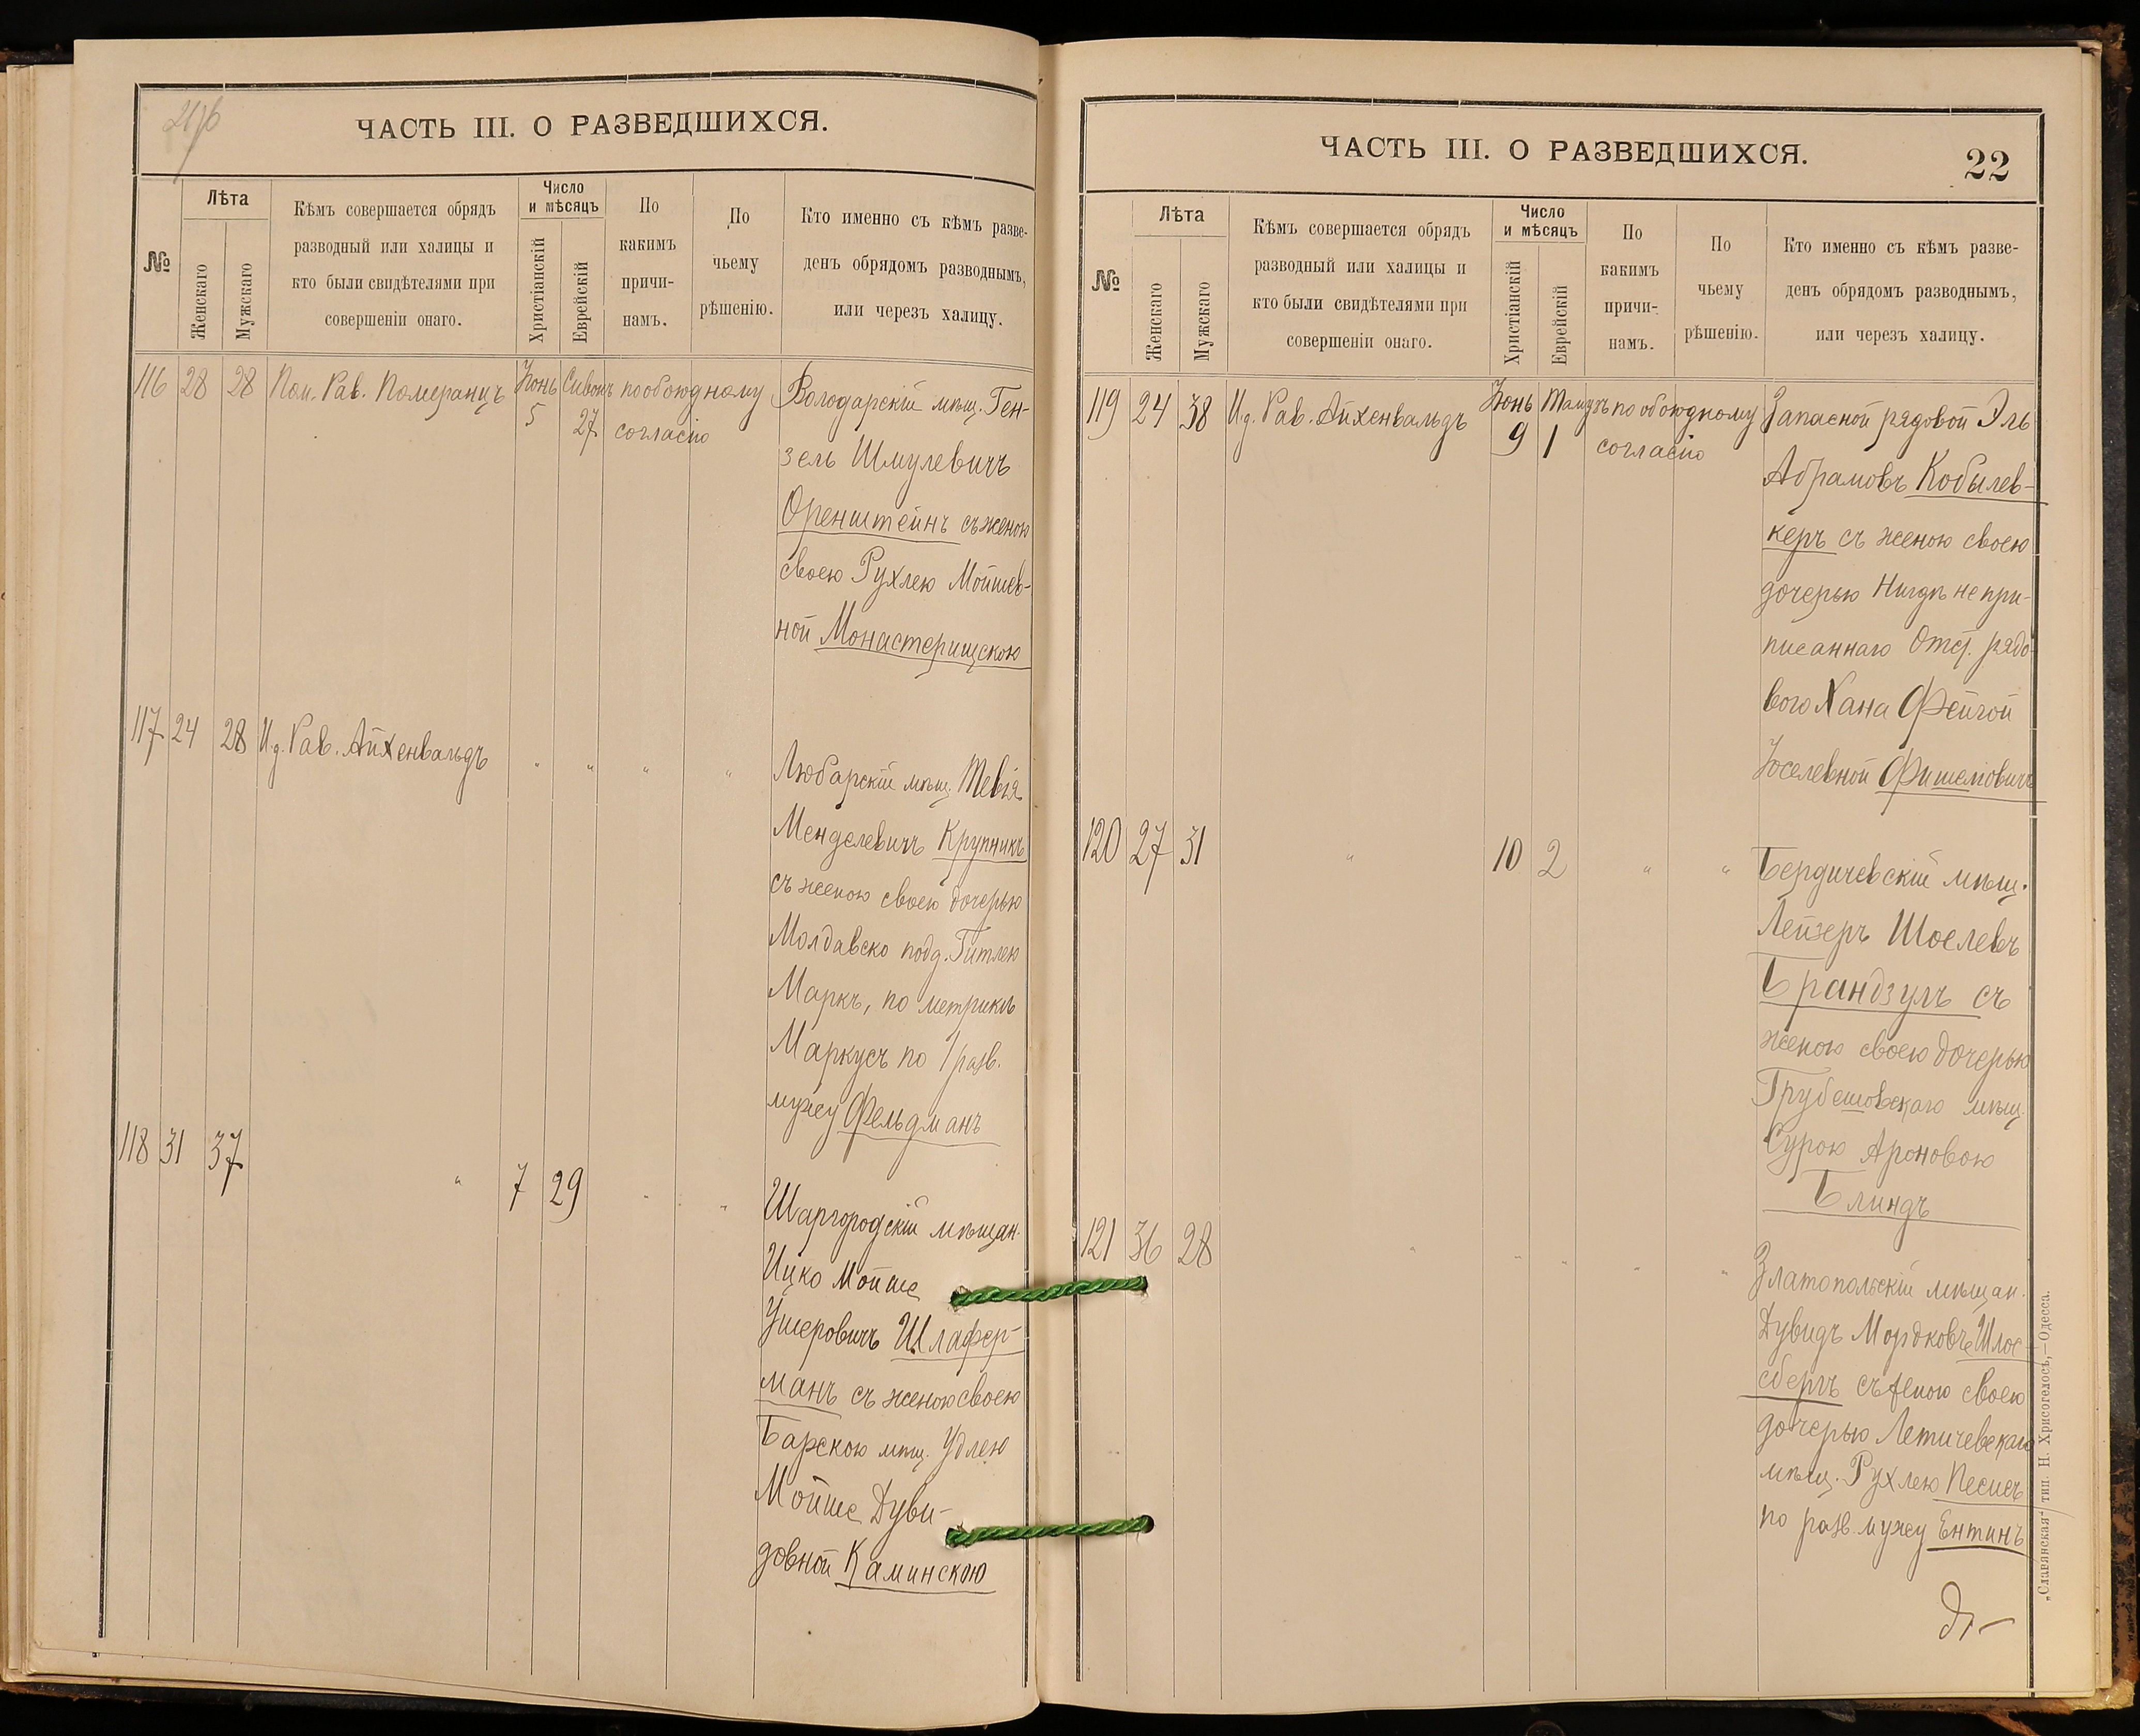 ЧАСТЬ III. О РАЗВЕДШИХСЯ.
№
Лѣта
Женскаго
Мужскаго
Кѣмъ совершается обрядъ
разводный или халицы и
кто были свидѣтелями при
совершеніи онаго.
Число
и мѣсяцъ
Христіанскій
Еврейскій
По
какимъ
причи-
намъ.
По
чьему
рѣшенію.
Кто именно съ кѣмъ разве-
денъ обрядомъ разводнымъ,
или черезъ халицу.
116 28 28 Пом. Рав. Померанцъ Іюнь 5 Сивонъ 27 по обоюдному
согласію
Володарскій мѣщ. Ген-
зель Шмулевичъ
Оренштейнъ съ женою
своею Рухлею Мойшев-
ной Монастерищскою
117 24 28 И.д. Рав. Айхенвальдъ " " " "
Любарскій мѣщ. Тевія
Менделевичъ Крупникъ
съ женою своею дочерью
Молдавско подд. Гитлею
Маркъ, по метрикѣ
Маркусъ по 1 разв.
мужу Фельдманъ
118 31 37 " 7 29 " "
Шаргородскій мѣщан.
Ицко Мойше
Ушеровичъ Шлафер-
манъ съ женою своею
Барскою мѣщ. Удлею
Мойше Дуви-
довной Каминскою
ЧАСТЬ III. О РАЗВЕДШИХСЯ.
22
№
Лѣта
Женскаго
Мужскаго
Кѣмъ совершается обрядъ
разводный или халицы и
кто были свидѣтелями при
совершеніи онаго.
Число
и мѣсяцъ
Христіанскій
Еврейскій
По
какимъ
причи-
намъ.
По
чьему
рѣшенію.
Кто именно съ кѣмъ разве-
денъ обрядомъ разводнымъ,
или черезъ халицу.
119 24 38 И.д. Рав. Айхенвальдъ Іюнь 9 Тамузъ 1 по обоюдному
согласію
Запасной рядовой Эль
Абрамовъ Кобылев-
керъ съ женою своею
дочерью Нигдѣ не при-
писаннаго Отст. рядо-
вого Хана Фейгой
Іоселевной Фишелювичъ
120 27 31 " 10 2 " "
Бердичевскій мѣщ.
Лейзеръ Шоелевъ
Брандзулъ съ
женою своею дочерью
Грубешовскаго мѣщ.
Сурою Ароновою
Блиндъ
121 36 28 " " " " "
Златопольскій мѣщан.
Дувидъ Мордковъ Шлос-
бергъ съ женою своею
дочерью Летичевскаго
мѣщ. Рухлею Песисъ
по разв. мужу Ентинъ
„Славянская" тип. Н. Хрисогелосъ,—Одесса.